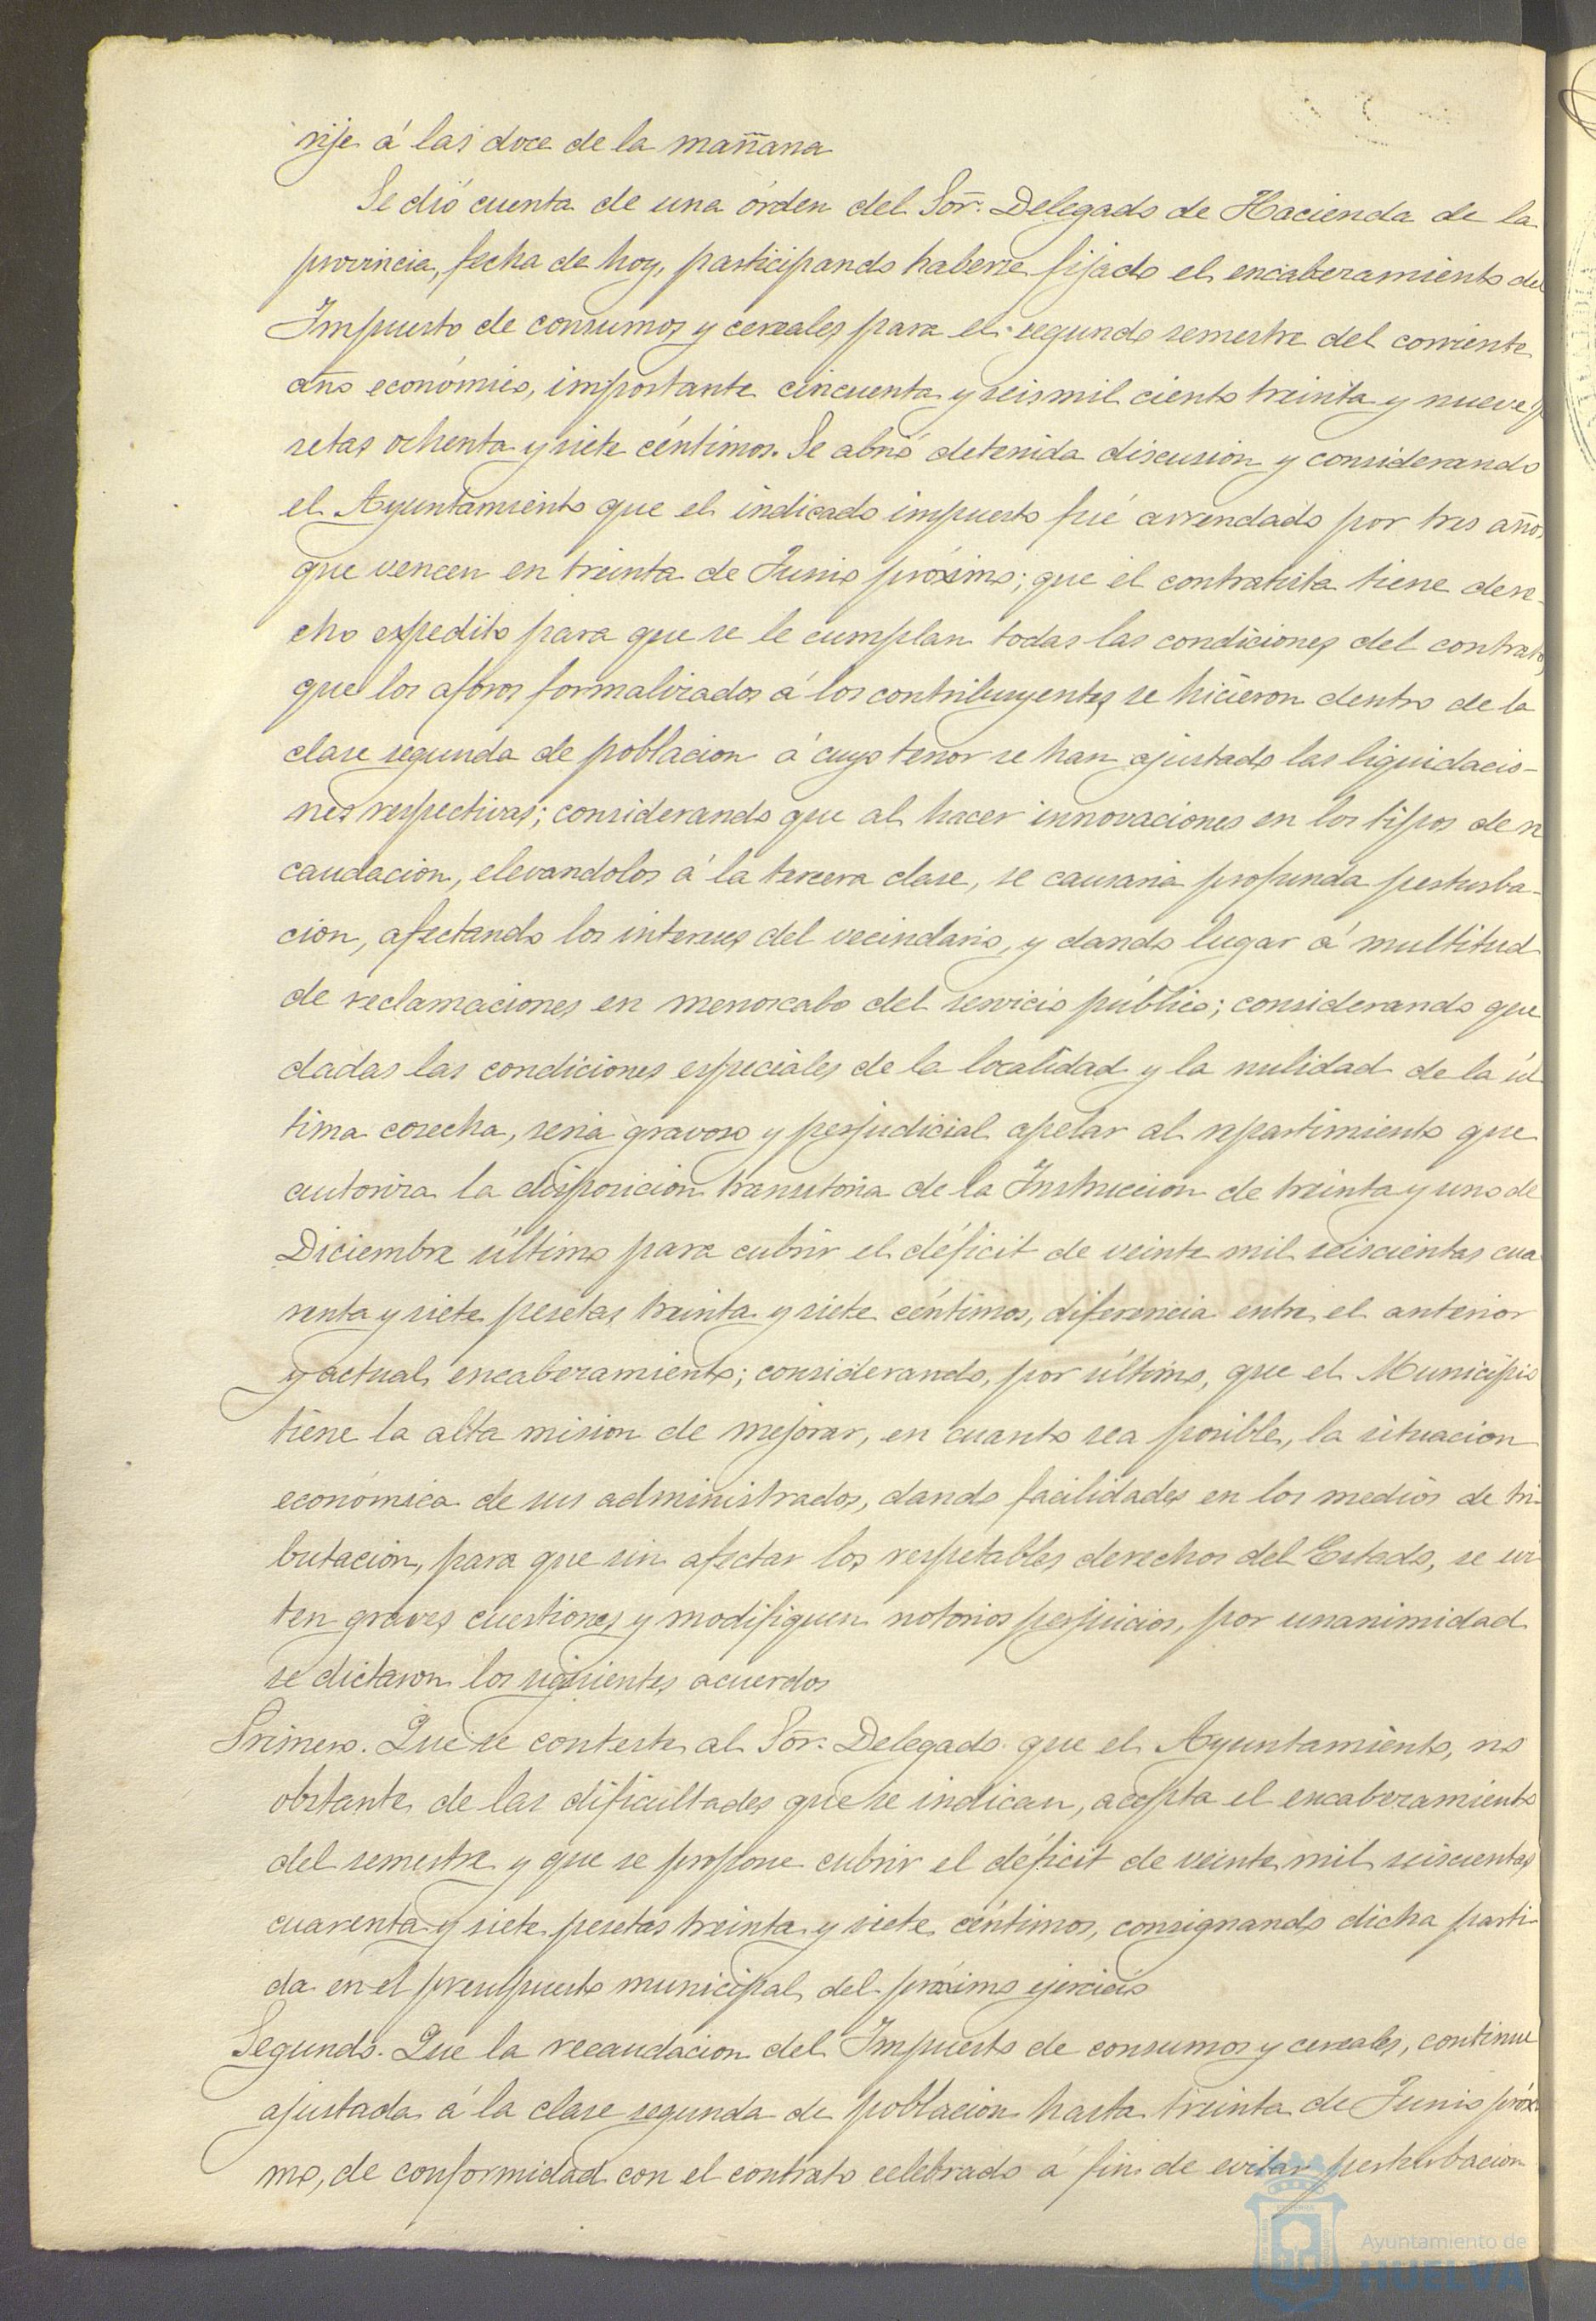 rije á las doce de la mañana
Se dió cuenta de una órden del Sor. Delegado de Hacienda de la
provincia, fecha de hoy, participando haberse fijado el encabezamiento del
Impuesto de consumos y cereales para el segundo semestre del corriente
año económico, importante cincuenta y seis mil ciento treinta y nueve pe
setas ochenta y siete céntimos. Se abrió detenida discusion y considerando
el Ayuntamiento que el indicado impuesto fué arrendado por tres años
que vencen en treinta de Junio próximo; que el contratista tiene dere-
cho expedito para que se le cumplan todas las condiciones del contrato,
que los aforos formalizados á los contribuyentes se hicieron dentro de la
clase segunda de poblacion á cuyo tenor se han ajustado las liquidacio-
nes respectivas; considerando que al hacer innovaciones en los tipos de re
caudacion, elevandolos á la tercera clase, se causaria profunda perturba-
cion, afectando los intereses del vecindario, y dando lugar á multitud
de reclamaciones en menoscabo del servicio público; considerando que
dadas las condiciones especiales de la localidad y la nulidad de la úl
tima cosecha, seria gravoso y perjudicial apelar al repartimiento que
autoriza la disposicion transitoria de la Instruccion de treinta y uno de
Diciembre último para cubrir el déficit de veinte mil seiscientas cua
renta y siete pesetas treinta y siete céntimos, diferencia entre el anterior
y actual encabezamiento; considerando, por último, que el Municipio
tiene la alta mision de mejorar, en cuanto sea posible, la situacion
económica de sus administrados, dando facilidades en los medios de tri-
butacion, para que sin afectar los respetables derechos del Estado, se evi
ten graves cuestiones y modifiquen notorios perjuicios, por unanimidad
se dictaron los siguientes acuerdos
Primero. Que se conteste al Sor. Delegado que el Ayuntamiento, no
obstante de las dificultades que se indican, acepta el encabezamiento
del semestre y que se propone cubrir el déficit de veinte mil seiscientas
cuarenta y siete pesetas treinta y siete céntimos, consignando dicha parti-
da en el presupuesto municipal del próximo ejercicio
Segundo. Que la recaudacion del Impuesto de consumos y cereales, continue
ajustada á la clase segunda de poblacion hasta treinta de Junio próxi
mo, de conformidad con el contrato celebrado á fin de evitar perturbacion
Ayuntamiento de
HUELVA